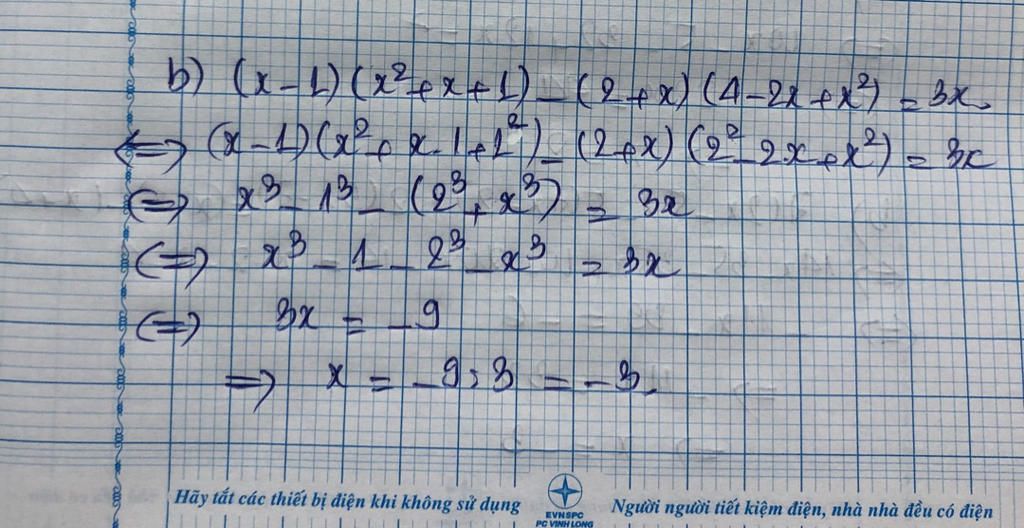 b) (x-1)(x²+x+1)-(2+x)(4-2x+x²)=3x
<=> (x-1)(x²+x.1+1²)-(2+x)(2²-2x+x²)=3x
<=> x³-1³-(2³+x³)=3x
<=> x³-1-2³-x³=3x
<=> 3x=-9
=> x=-9:3=-3
Hãy tắt các thiết bị điện khi không sử dụng
EVNSPC
PC VINH LONG
Người người tiết kiệm điện, nhà nhà đều có điện